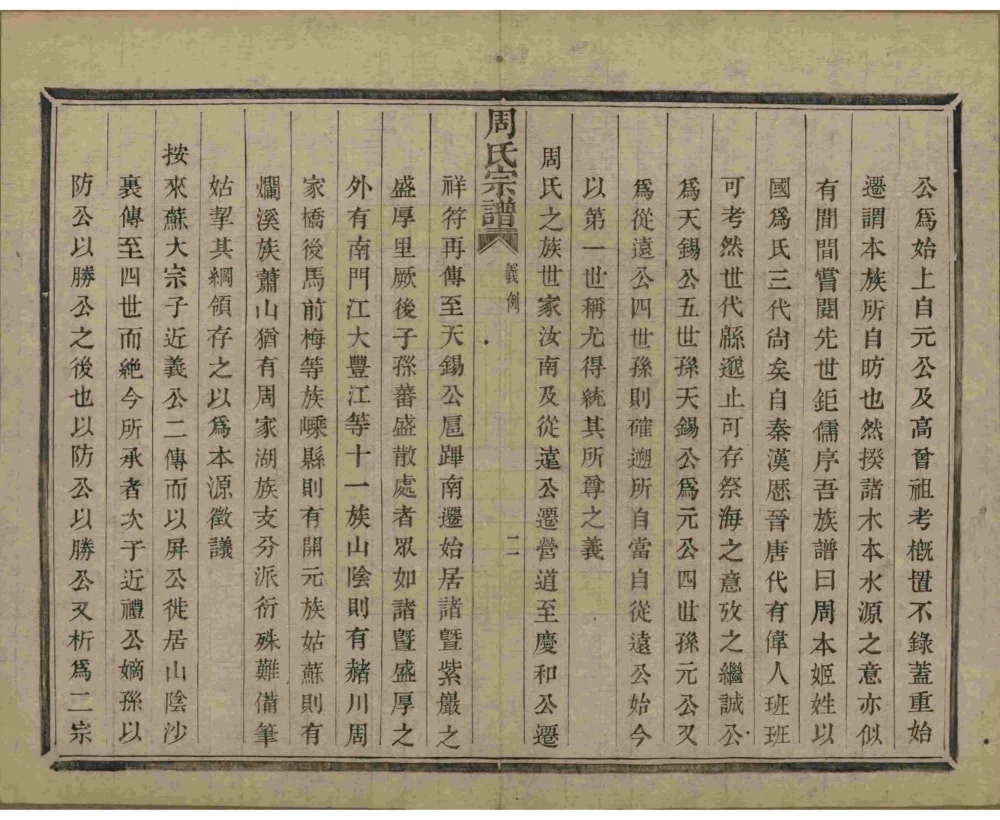 公爲始上自元公及高曾祖考槪置不錄蓋重始
遷謂本族所自昉也然揆諸木本水源之意亦似
有間間嘗閱先世鉅儒序吾族譜曰周本姬姓以
國爲氏三代尙矣自秦漢歷晉唐代有偉人班班
可考然世代緜邈止可存祭海之意攷之繼誠公
爲天錫公五世孫天錫公爲元公四世孫元公又
爲從遠公四世孫則確遡所自當自從遠公始今
以第一世稱尤得統其所尊之義
周氏之族世家汝南及從遠公遷營道至慶和公遷
周氏宗譜 義例 二
祥符再傳至天錫公扈蹕南遷始居諸暨紫巖之
盛厚里厥後子孫蕃盛散處者眾如諸暨盛厚之
外有南門江大豐江等十一族山陰則有赭川周
家橋後馬前梅等族嵊縣則有開元族姑蘇則有
爛溪族蕭山猶有周家湖族支分派衍殊難備筆
姑挈其綱領存之以爲本源徵議
按來蘇大宗子近義公二傳而以屏公徙居山陰沙
裏傳至四世而絶今所承者次子近禮公嫡孫以
防公以勝公之後也以防公以勝公又析爲二宗